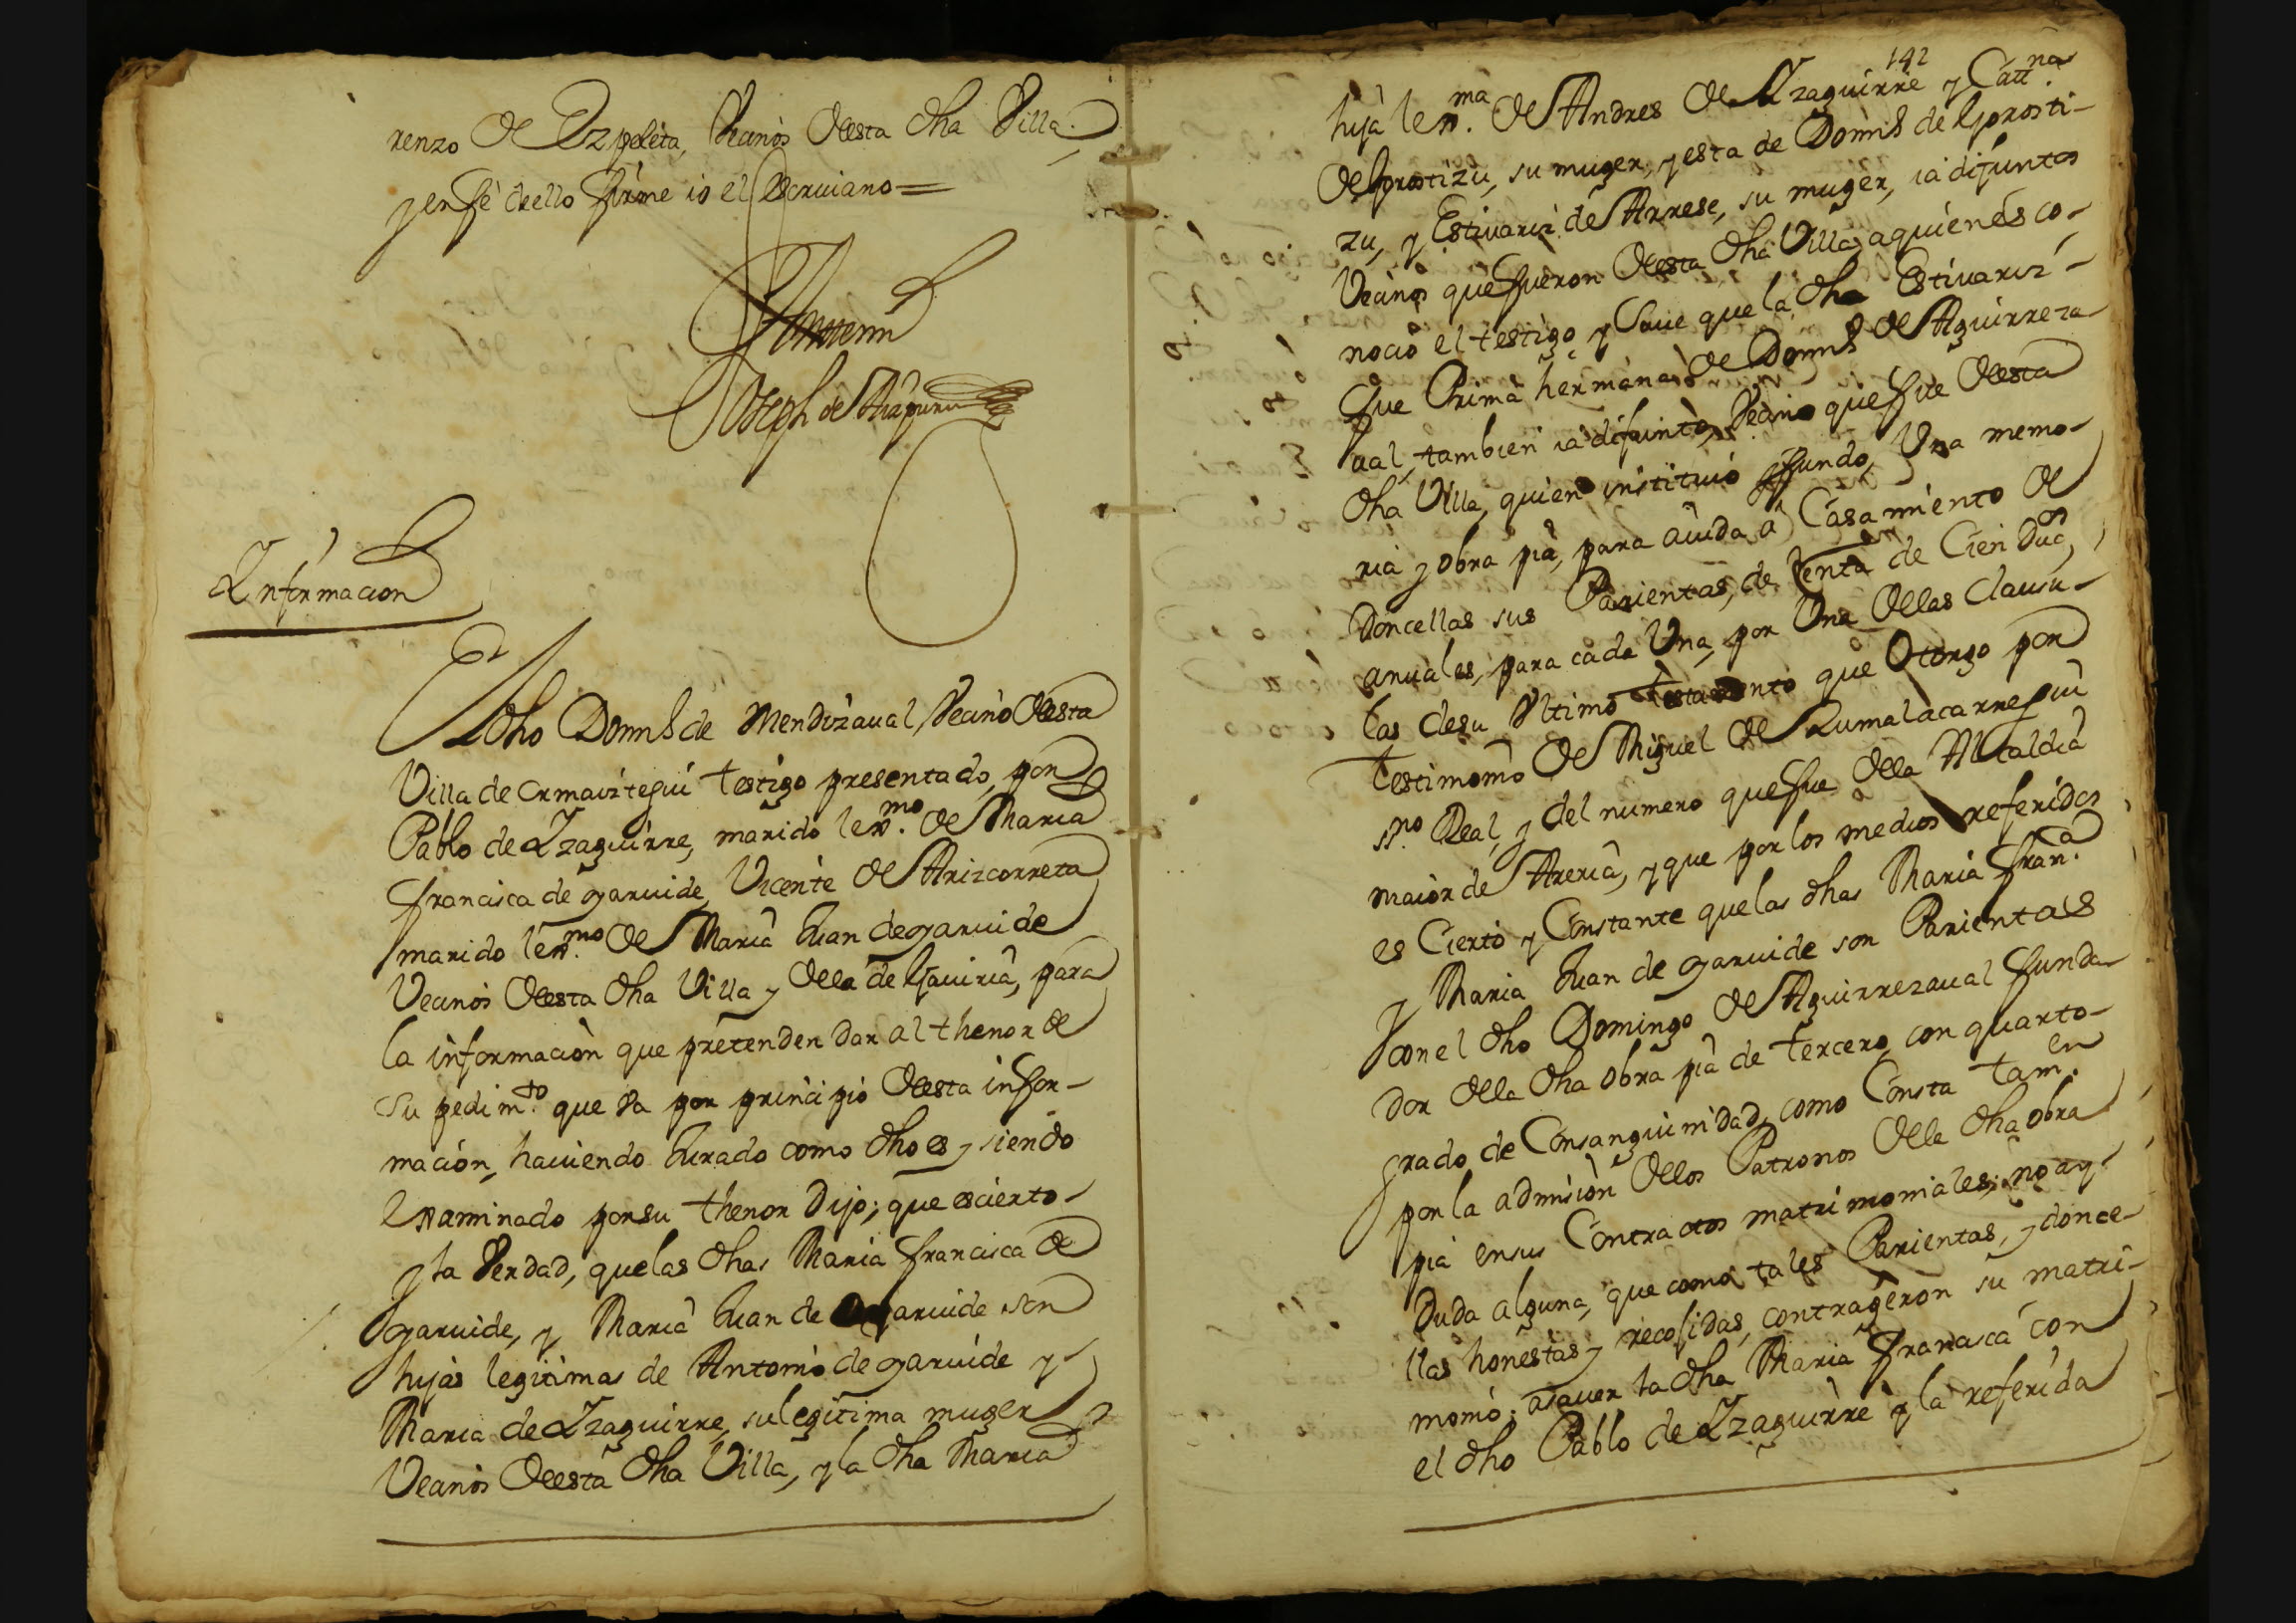 renzo de Ezpeleta, Vecinos desta dha Villa
y en fe dello firme io el Escriuano =
Antemi
Joseph de
Informacion
El dho Domi.º de Mendizaual, Vecino desta
Villa de Ormaiztegui testigo presentado, por
Pablo de Yzaguirre, marido lexmo. de Maria
francisca de garuide, Vicente de Arizcorreta
marido lexmo. de Maria Juan de garuide
Vecinos desta dha Villa y dela de Gauiria, para
la informacion que pretenden dar al thenor de
su pedimto. que va por principio desta infor-
macion, hauiendo Jurado como dho es y siendo
examinado por su thenor Dijo; que es cierto
y la Verdad, que las dhas Maria francisca de
garuide, y Maria Juan de garuide son
hijas legitimas de Antonio de garuide y
Maria de Yzaguirre, su legitima muger
Vecinos desta dha Villa, y la dha Maria
142
hija lexma. de Andres de Yzaguirre y Cattna.
de Gorostizu, su muger, y esta de Domi.º de Gorosti-
zu, y Estiuariz de Arrese, su muger, ia difuntos
Vecinos que fueron desta dha Villa, a quienes co-
nocio el testigo y Saue que la dha Estiuariz
fue Prima hermana de Domi.º de Aguirreza-
ual, tambien ia difunto, Vecino que fue desta
dha Villa, quien instituio y fundo, Vna memo-
ria y obra pia, para aiuda a Casamiento de
Doncellas sus Parientas, de Renta de Cien Ducos,
anuales, para cada Vna, por Vna delas Clausu-
las de su Vltimo testamento que Otorgo por
testimonio de Miguel de Zumalacarregui
sno. Real, y del numero que fue dela Alcaldia
maior de Areria, y que por los medios referidos
es Cierto y Constante que las dhas Maria Frana.
y Maria Juan de garuide son Parientas
con el dho Domingo de Aguirrezaual funda-
dor dela dha obra pia de tercero con quarto
grado de Consanguinidad, como Consta tamen.
por la admision delos Patronos dela dha obra
pia en sus Contractos matrimoniales; no ay
Duda alguna, que como tales Parientas, y donce-
llas honestas y recojidas, contrageron su matri-
monio; a sauer la dha Maria Francisca con
el dho Pablo de Yzaguirre y la referida